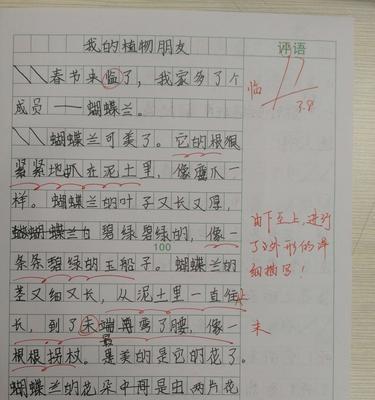 我的植物朋友
评语
春节来临了，我家多了个
成员——蝴蝶兰。
临
3.8
蝴蝶兰可美了。它的根狠
紧紧地抓在泥土里，像鹰爪一
样。蝴蝶兰的叶子又长又厚，
碧绿碧绿的，像一
100
条条碧绿的玉船子。蝴蝶兰的
茎又细又长，从泥土里一直往上
长，到了末端再弯了腰，像一
根根拐杖。最美的是它的花了。
蝴蝶兰的花朵中是由两片花
由下至上，进行
了对外形的详
细描写！
末